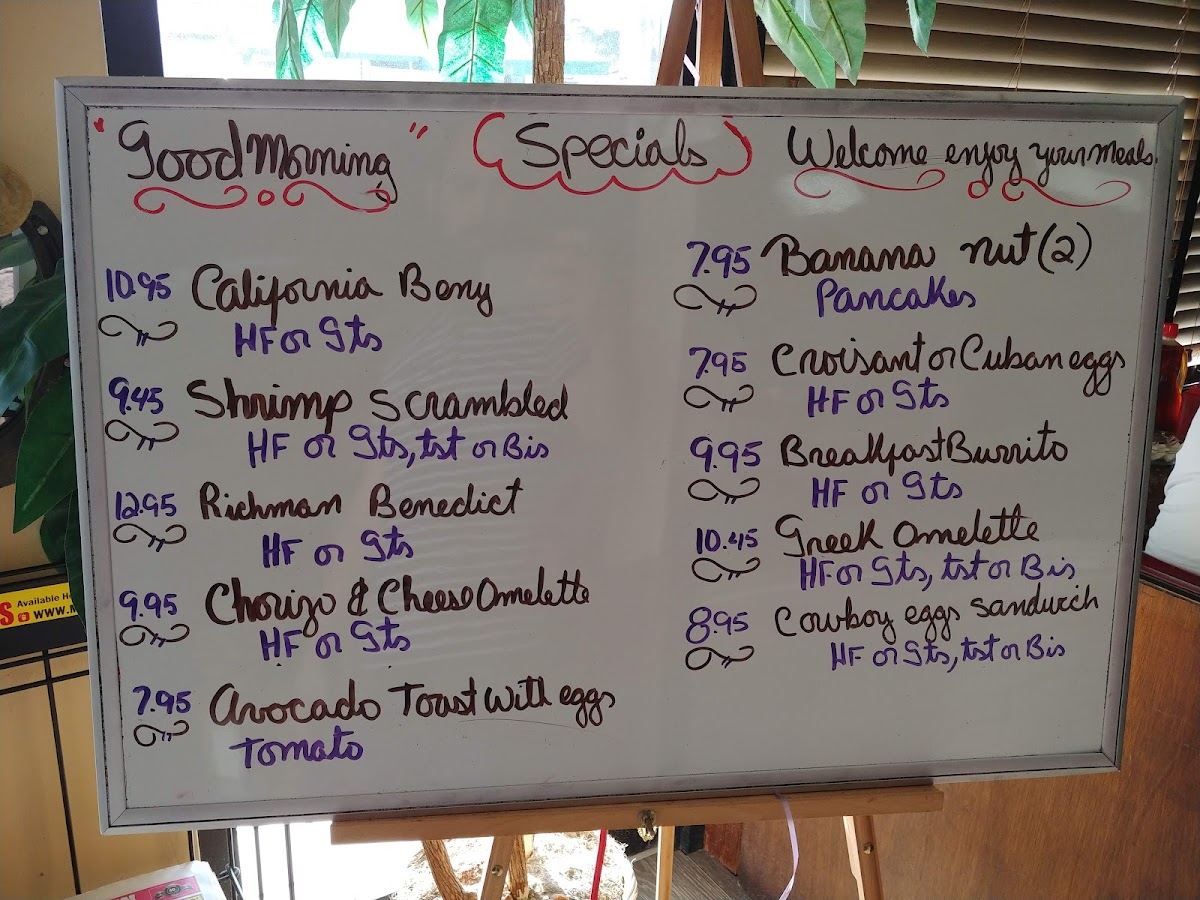 "Good Morning" (Specials) Welcome enjoy your meals.
10.95 California Beny
HF or Gts
9.45 Shrimp Scrambled
HF or Gts, tst or Bis
12.95 Richman Benedict
HF or Gts
9.95 Chorizo & Cheese Omelette
HF or Gts
7.95 Avocado Toast with eggs
Tomato
7.95 Banana nut (2)
Pancakes
7.95 Croisant or Cuban eggs
HF or Gts
9.95 Breakfast Burrito
HF or Gts
10.45 Greek Omelette
HF or Gts, tst or Bis
8.95 Cowboy eggs Sandwich
HF or Gts, tst or Bis
Available
WWW.